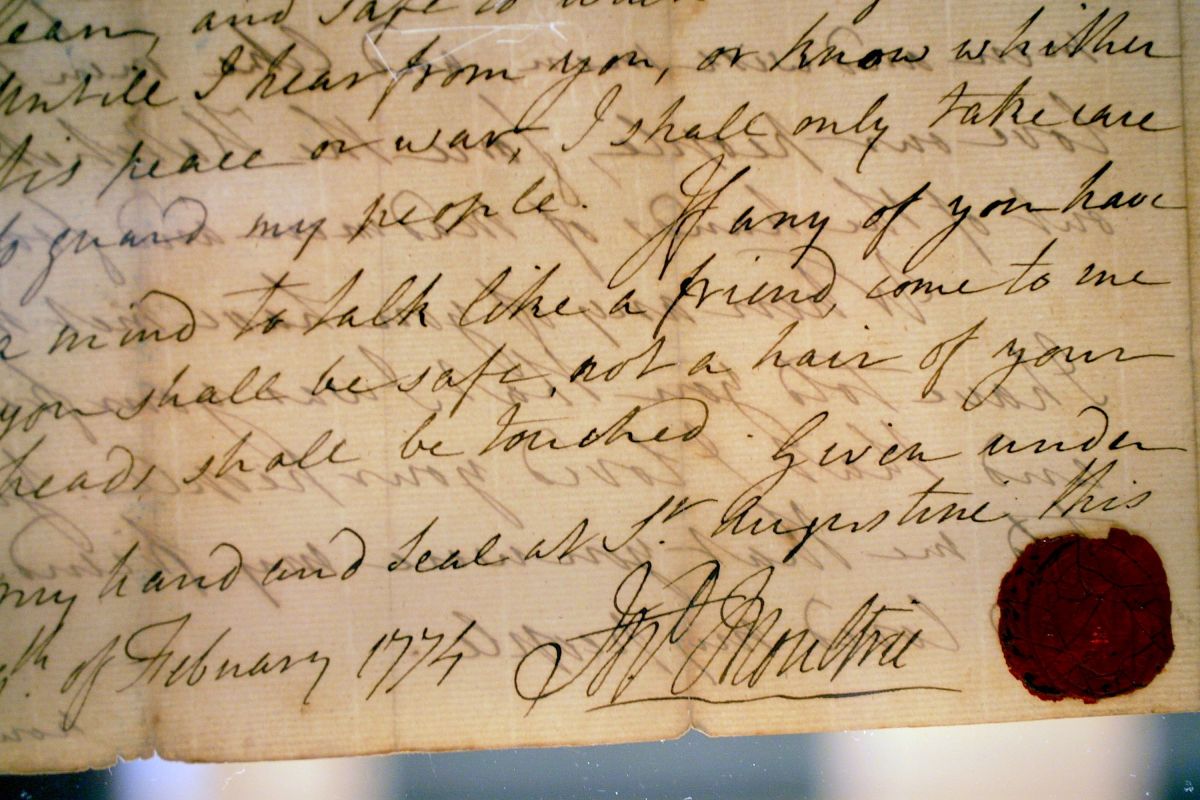 and safe
untill I hear from you, or know whither
tis peace or war, I shall only take care
to guard my people. If any of you have
a mind to talk like a friend, come to me
you shall be safe, not a hair of your
heads shall be touched. Given under
my hand and seal at St. Augustine this
th. of February 1774 Jno. Moultrie